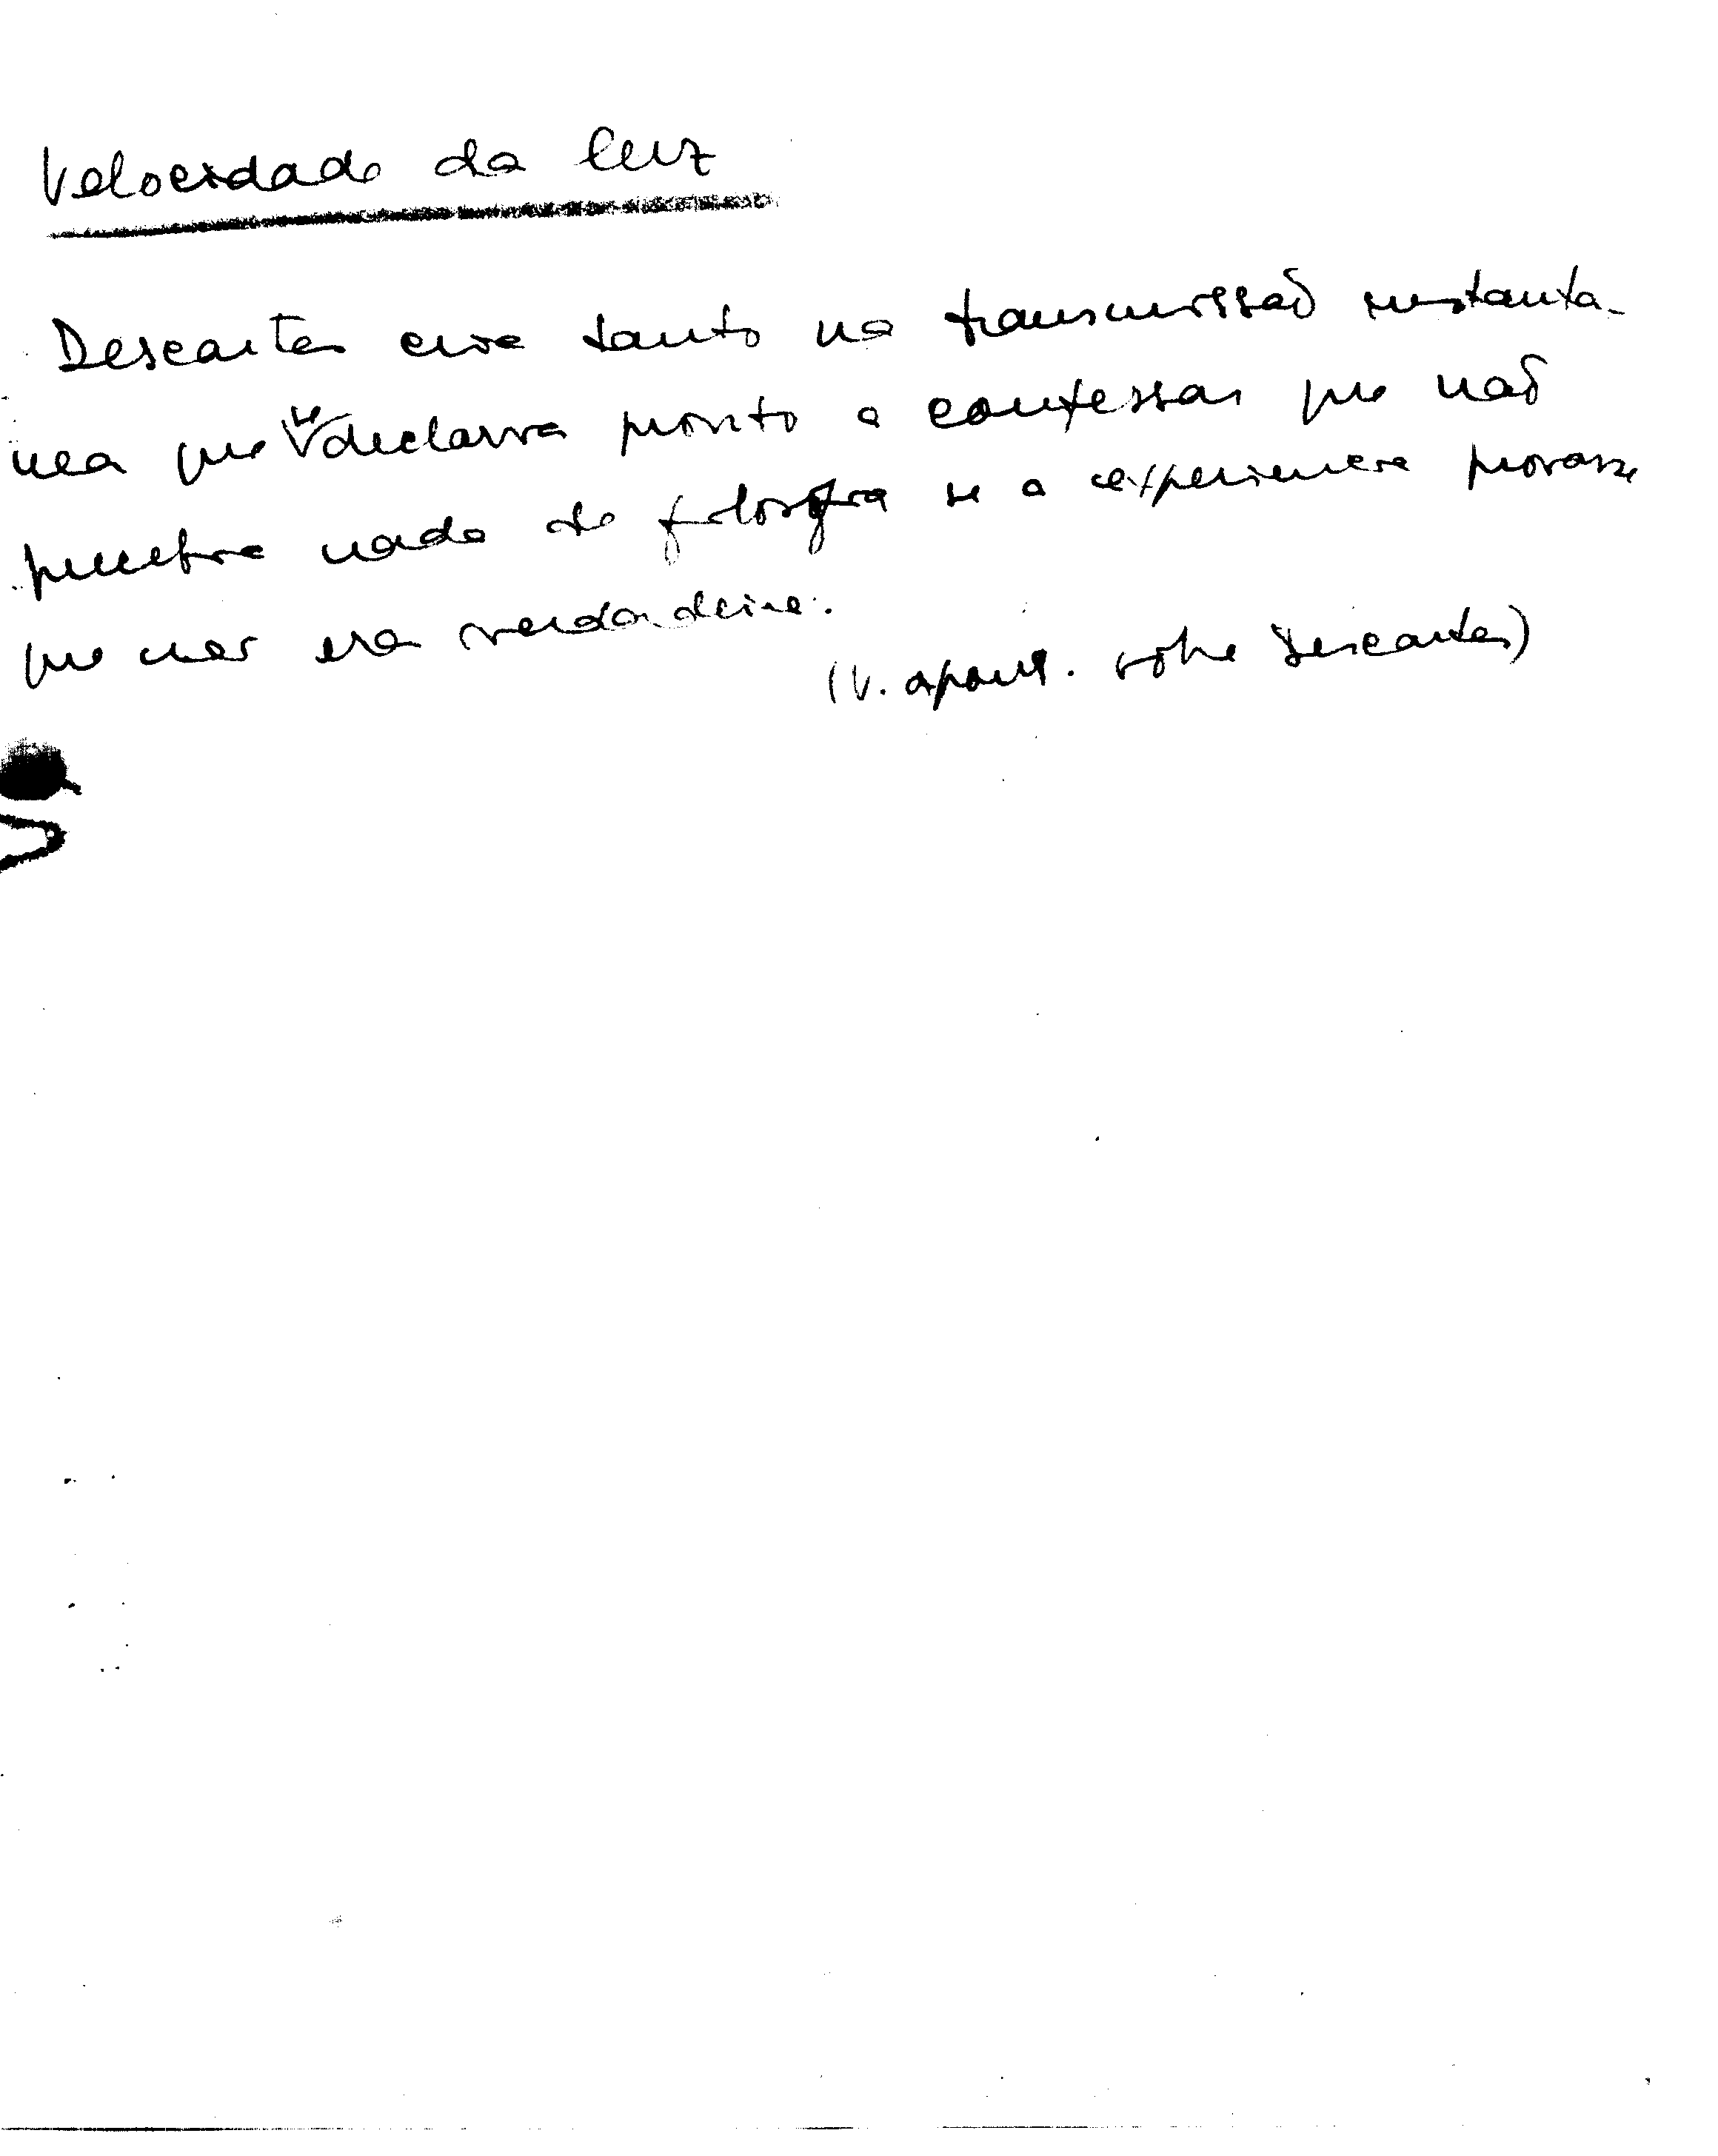 Velocidade da luz
Descartes cria tanto na transmissão instantâ-
nea que se declarava pronto a confessar que não
percebia nada de filosofia se a experiência provasse
que não era verdadeira.
(V. apont. sobre Descartes)